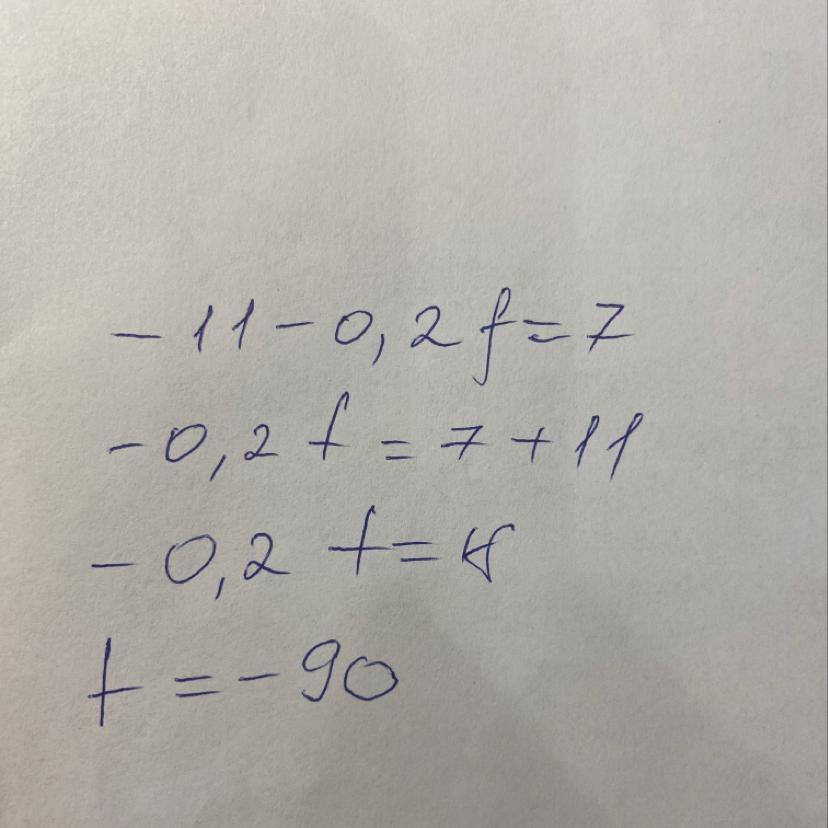 -11-0,2f=7
-0,2f=7+11
-0,2f=18
f=-90